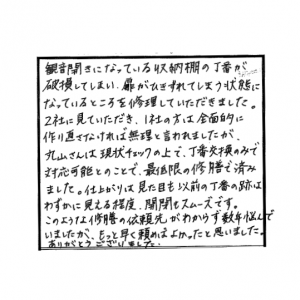 観音開きになっている収納棚の丁番が
破損してしまい、扉がひきずれてしまう状態に
なっているところを修理していただきました。
2社に見ていただき、1社の方は全面的に
作り直さなければ無理と言われましたが、
丸山さんは現状チェックの上で、丁番交換のみで
対応可能とのことで、最低限の修繕で済み
ました。仕上がりは見た目も以前の丁番の跡は
わずかに見える程度、開閉もスムーズです。
このような修繕の依頼先がわからず数年悩んで
いましたが、もっと早く頼めばよかったと思いました。
ありがとうございました。